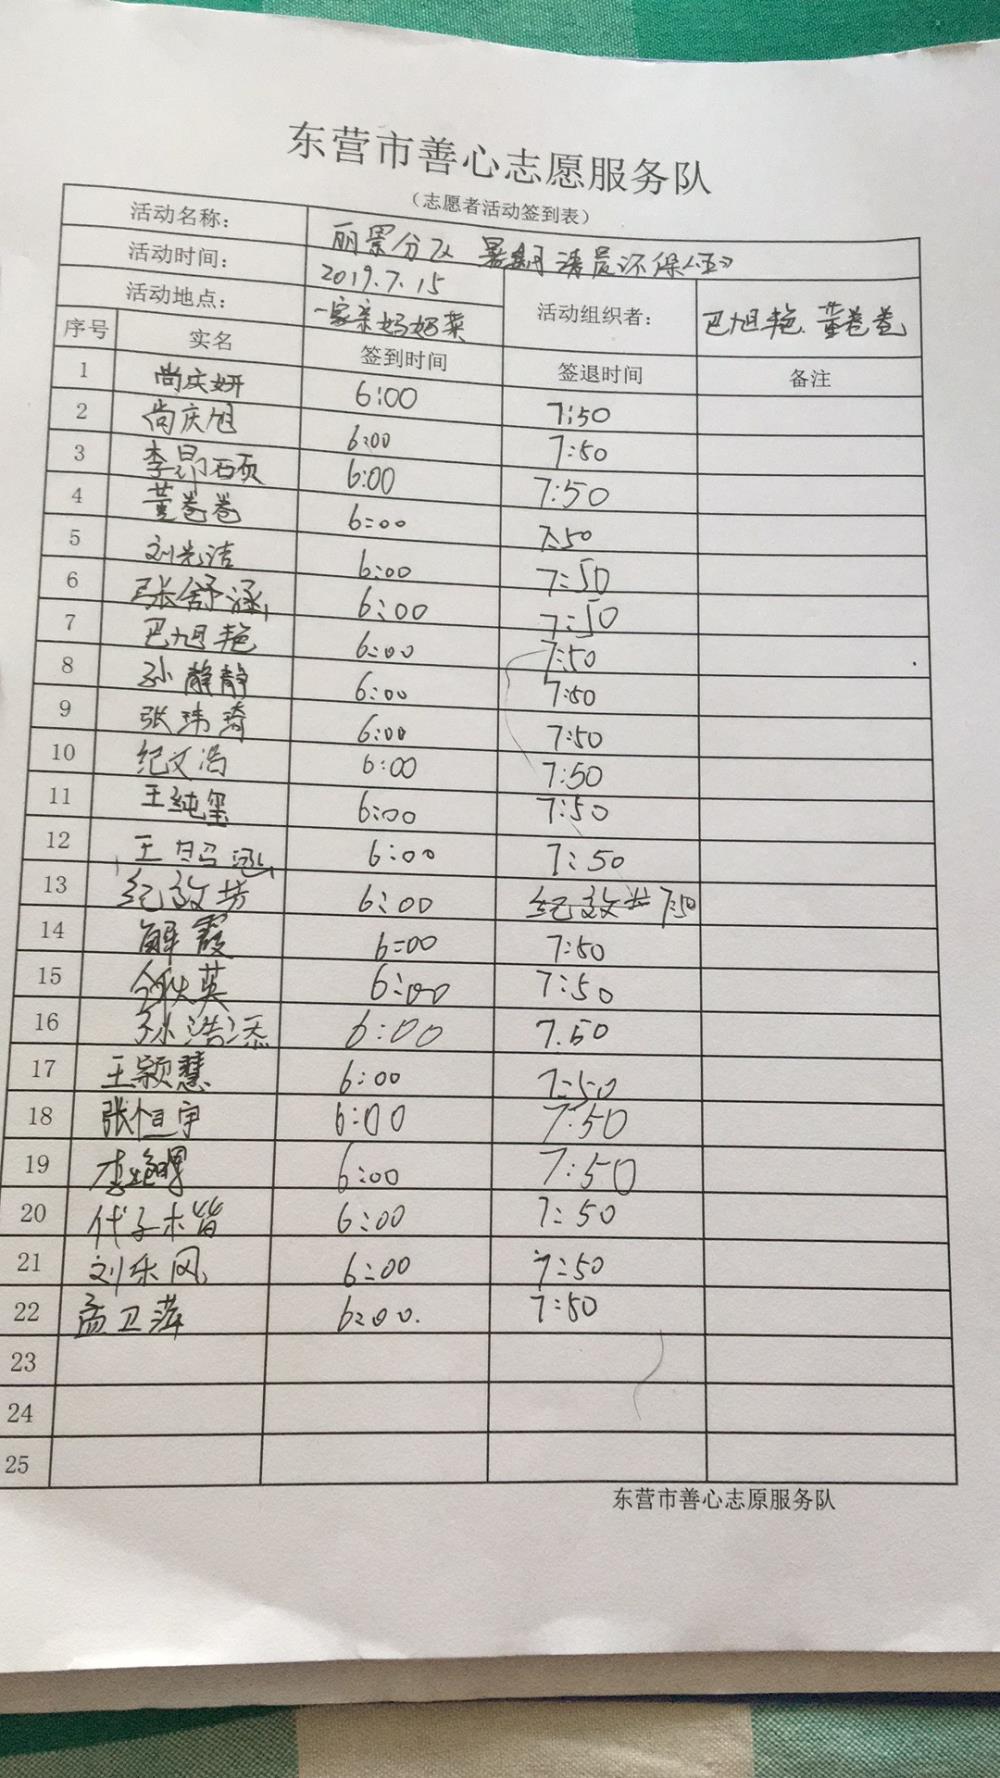 东营市善心志愿服务队
（志愿者活动签到表）
活动名称： 丽景分队 暑期清晨环保
活动时间： 2019.7.15 活动组织者： 巴旭艳 董卷卷
活动地点： 一家亲妈妈菜
序号 实名 签到时间 签退时间 备注
1 尚庆妍 6:00 7:50
2 尚庆旭 6:00 7:50
3 李昂硕 6:00 7:50
4 董卷卷 6:00 7:50
5 刘光洁 6:00 7:50
6 张舒涵 6:00 7:50
7 巴旭艳 6:00 7:50
8 孙静静 6:00 7:50
9 张玮琦 6:00 7:50
10 纪文浩 6:00 7:50
11 王纯玺 6:00 7:50
12 王 6:00 7:50
13 纪效芳 6:00 7:50
14 解霞 6:00 7:50
15 英 6:00 7:50
16 孙浩添 6:00 7.50
17 王颖慧 6:00 7:50
18 张恒宇 6:00 7:50
19 李艳 6:00 7:50
20 代子 6:00 7:50
21 刘乐风 6:00 7:50
22 孟卫萍 6:00. 7:50
23
24
25
东营市善心志原服务队